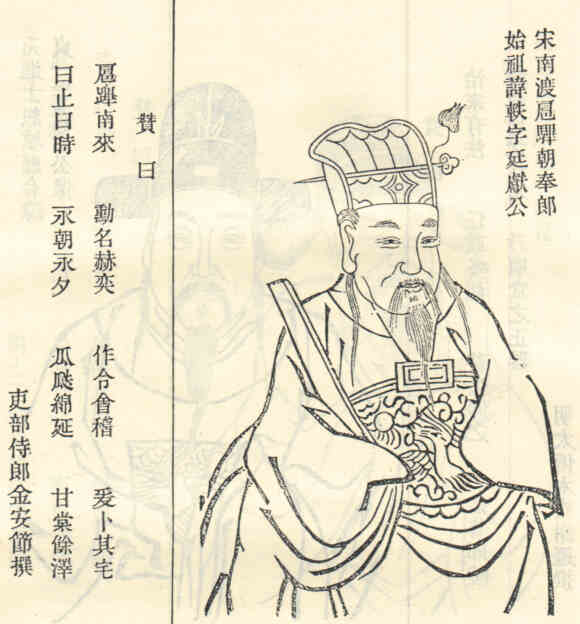 宋南渡扈驆朝奉郎
始祖諱軼字延獻公
贊曰
扈蹕南來 勳名赫奕 作令會稽 爰卜其宅
曰止曰時 永朝永夕 瓜瓞綿延 甘棠餘澤
吏部侍郎金安節撰